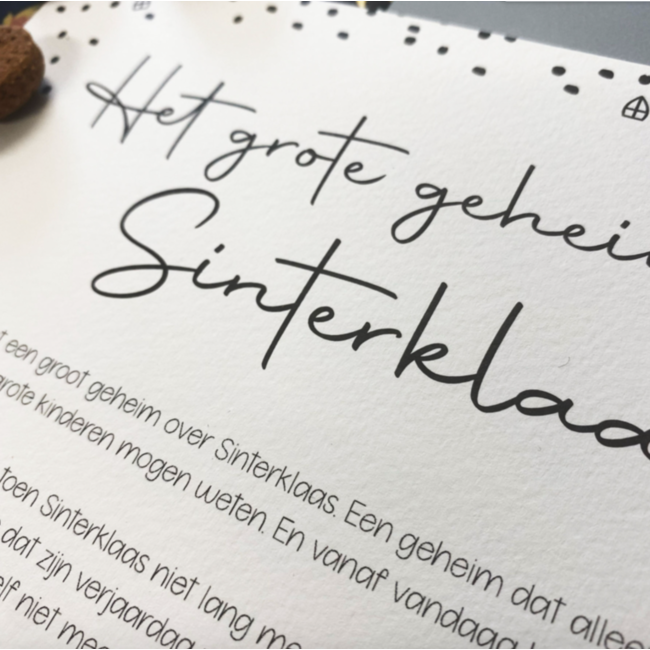 Het grote
Sinterklaa
een groot geheim over Sinterklaas. Een geheim dat
grote kinderen mogen weten. En vanaf vandaag
toen Sinterklaas niet lang
dat zijn verjaardag
niet